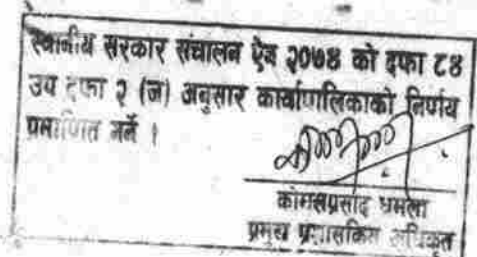 स्थानीय सरकार संचालन ऐन २०७४ को दफा ८४
उप दफा २ (ज) अनुसार कार्यपालिकाको निर्णय
प्रमाणित गर्ने ।
कोमलप्रसाद धमला
प्रमुख प्रशासकिय अधिकृत